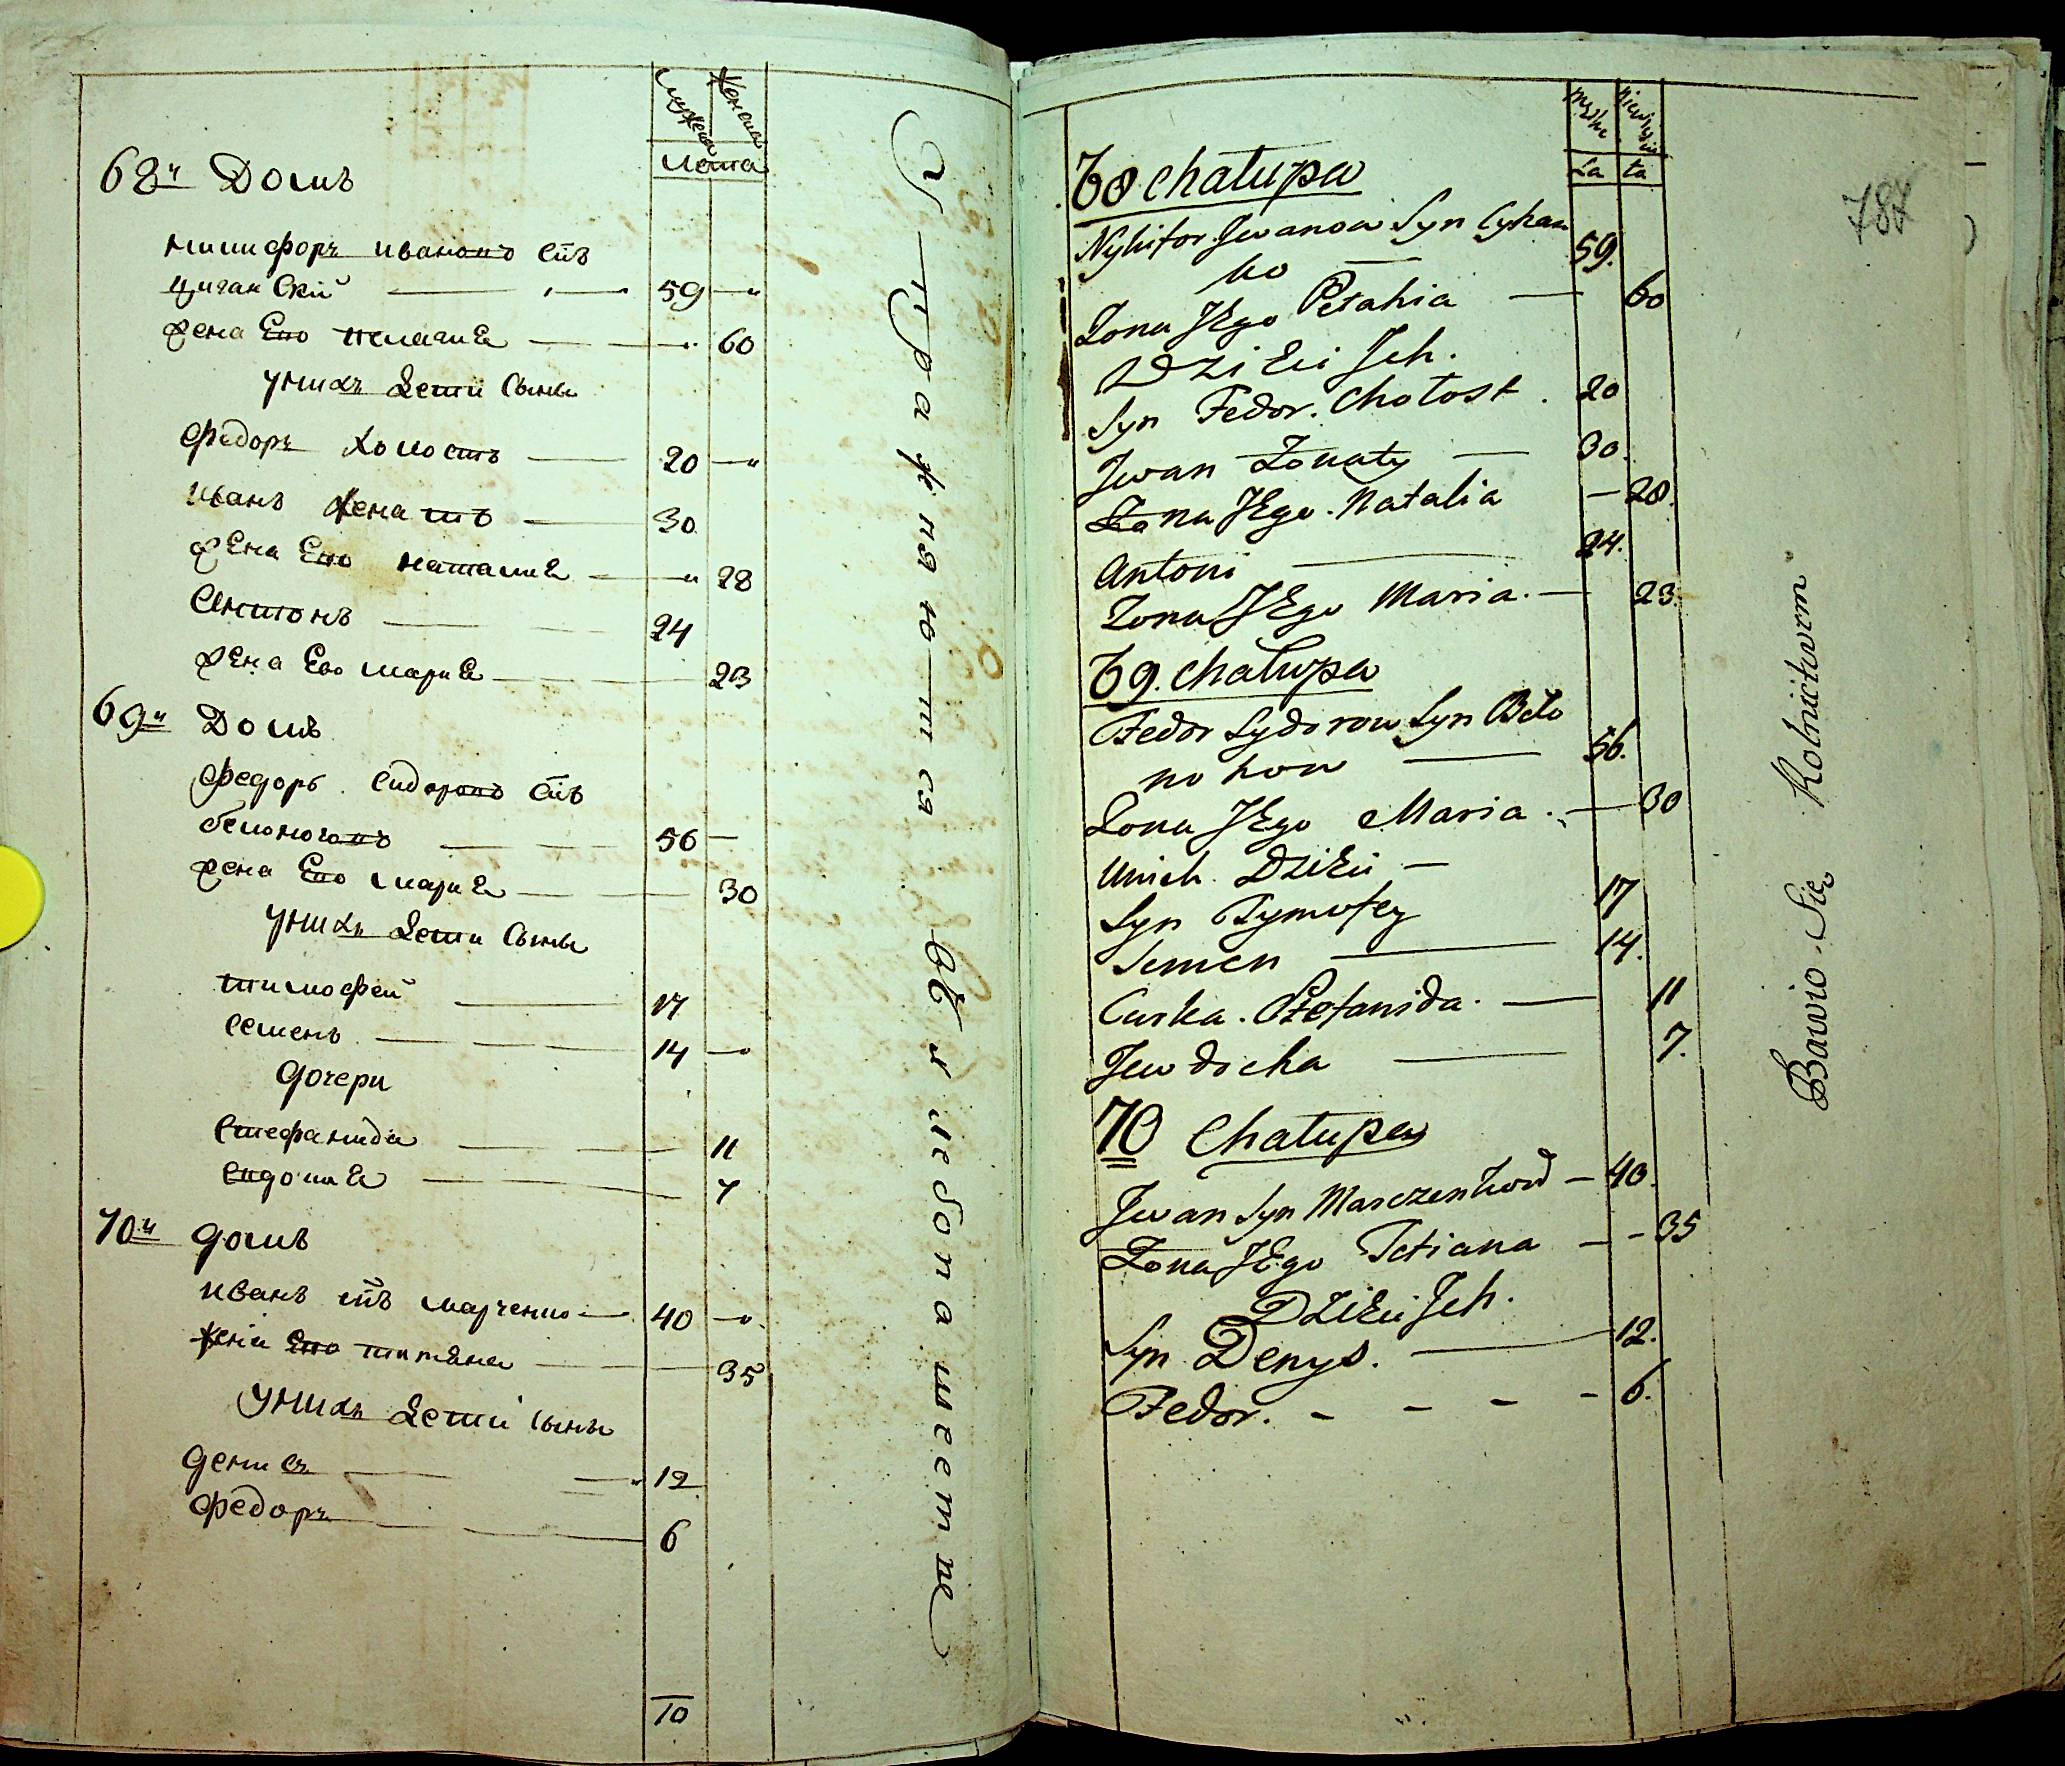 Мужеска Женска
Лета
68й Домъ
Никифоръ Ивановъ снъ
Циганский 59
Жена Его Пелагиа 60
У них дети Сыны
Федоръ Холостъ 20
Иванъ Женатъ 30
Жена Его Наталиа 28
Антонъ 24
Жена Ево Мариа 23
69й Домъ
Федоръ Сидоровъ снъ
белоноговъ 56
Жена Его Мариа 30
У них дети Сыны
Тимофей 17
Семенъ 14
Дочери
Стефанида 11
Евдокиа 7
70й домъ
Иванъ снъ Марченко 40
Жена Его Татиана 35
У них дети Сыны
Денисъ 12
Федоръ 6
10
Упражняются
в хлебопашестве
La ta
787
68 Chałupa
Nykifor Jwanow Syn Cyhan
ko 59.
Żona JEgo Pełahia 60
Dzieci Jch.
Syn Fedor. Chołost. 20
Jwan Żonaty 30.
Żona JEgo. Natalia 28.
Antoni 24.
Żona JEgo Maria. 23.
69. Chałupa
Fedor Sydorow Syn Beło
nohow 56.
Żona JEgo Maria. 30
Unich Dzieci
Syn Tymofey 17
Semen 14.
Curka. Stefanida. 11
Jewdocha 7.
70 Chałupa
Jwan Syn Marczenkow 40.
Żona JEgo Tetiana 35
Dzieci Jch.
Syn Denys. 12.
Fedor. 6.
Bawio Się Rolnictwem